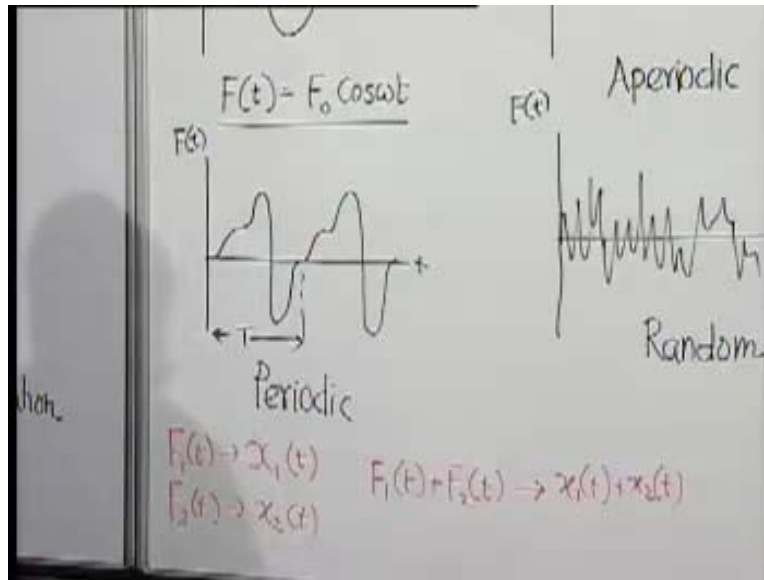 F(t) = F₀ Cosωt
Aperiodic
F(t)
F(t)
t
T
Periodic
Random
F₁(t) → x₁(t)
F₂(t) → x₂(t)
F₁(t) + F₂(t) → x₁(t) + x₂(t)